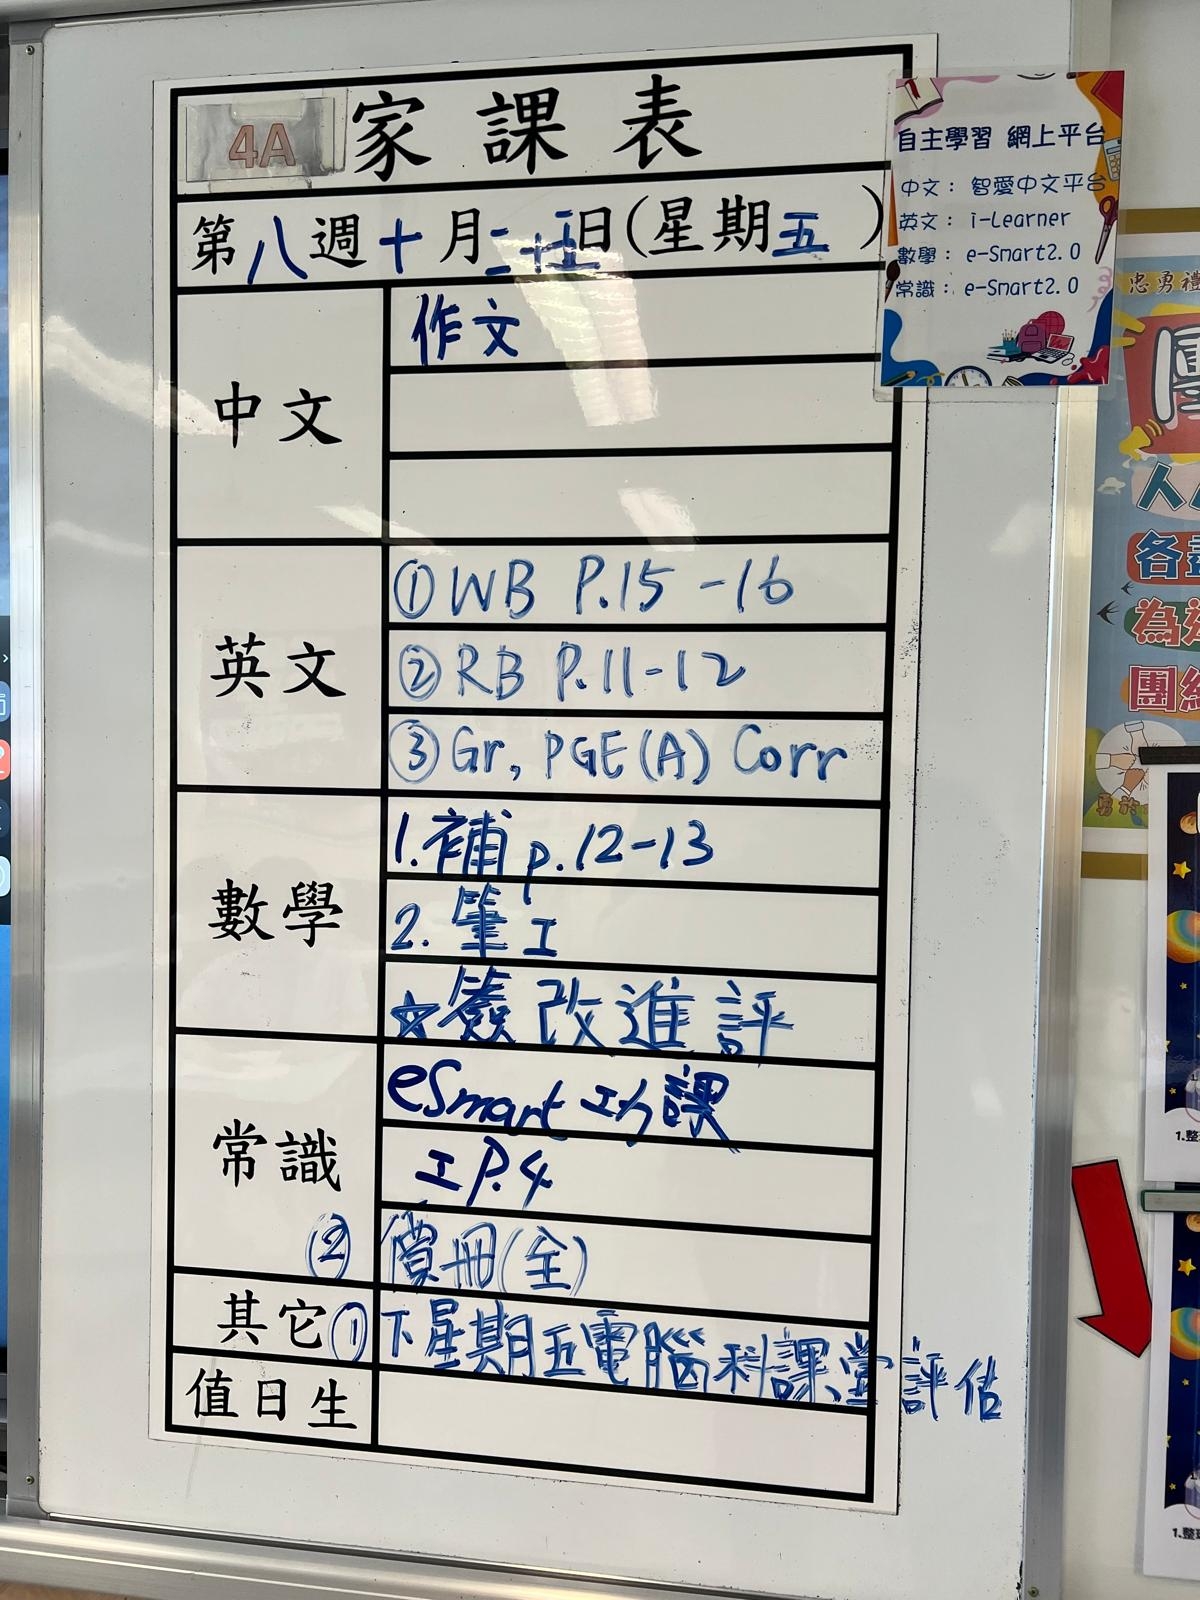 4A 家課表
第八週十月二十五日(星期五)
中文
作文
英文
①WB P.15-16
②RB P.11-12
③Gr, PGE(A) Corr
數學
1.補 p.12-13
2.筆工
☆簽改進評
常識
eSmart 功課
工P.4
② 賞冊(全)
其它① 下星期五電腦科課堂評估
值日生
自主學習 網上平台
中文:智愛中文平台
英文:i-Learner
數學:e-Smart2.0
常識:e-Smart2.0
忠勇禮
團
人
各盡
為
團結
勇於
1.整
1.整